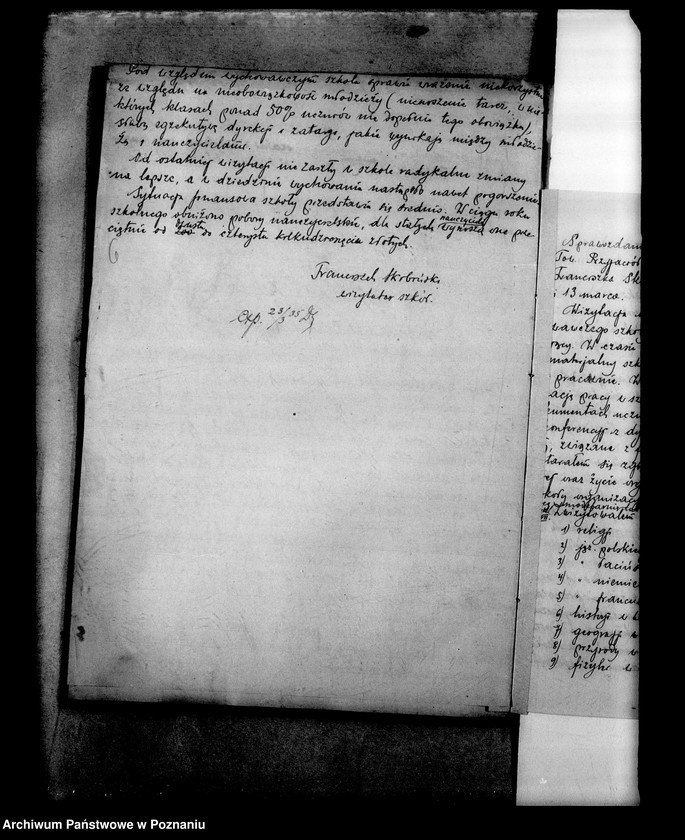 Pod względem wychowawczym szkoła sprawia wrażenie niekorzystne
ze względu na nieobowiązkowość młodzieży (nienoszenie tarcz, w nie-
których klasach ponad 50% uczniów nie dopełnia tego obowiązku),
słabą egzekutywę dyrekcji i zatargi, jakie wynikają między młodzie-
żą i nauczycielami.
Od ostatniej wizytacji nie zaszły w szkole radykalne zmiany
na lepsze, a w dziedzinie wychowania nastąpiło nawet pogorszenie.
Sytuacja finansowa szkoły przedstawia się średnio. W ciągu roku
szkolnego obniżono pobory nauczycielskie, dla stałych nauczycieli wynoszą one prze
ciętnie od do czterystu kilkudziesięciu złotych.
Franciszek
wizytator szkół.
Exp. 28/3 35
Sprawozdan
Tow.
Franciszka
i 13 marca.
Wizytacja
wawczego szko
W czasie
materjalny szk
pracownie. W
acją pracy w sz
kumentach ucz
konferencji z dy
związane z
starałem się
oraz życie
organizacj
zwizytowałem
1) religji
2) jęz. polskie
3) " łaciń
4) " niemie
5) " francu
6) historji w
7) geografji w
8) przyrody w
9) fizyki w
Archiwum Państwowe w Poznaniu